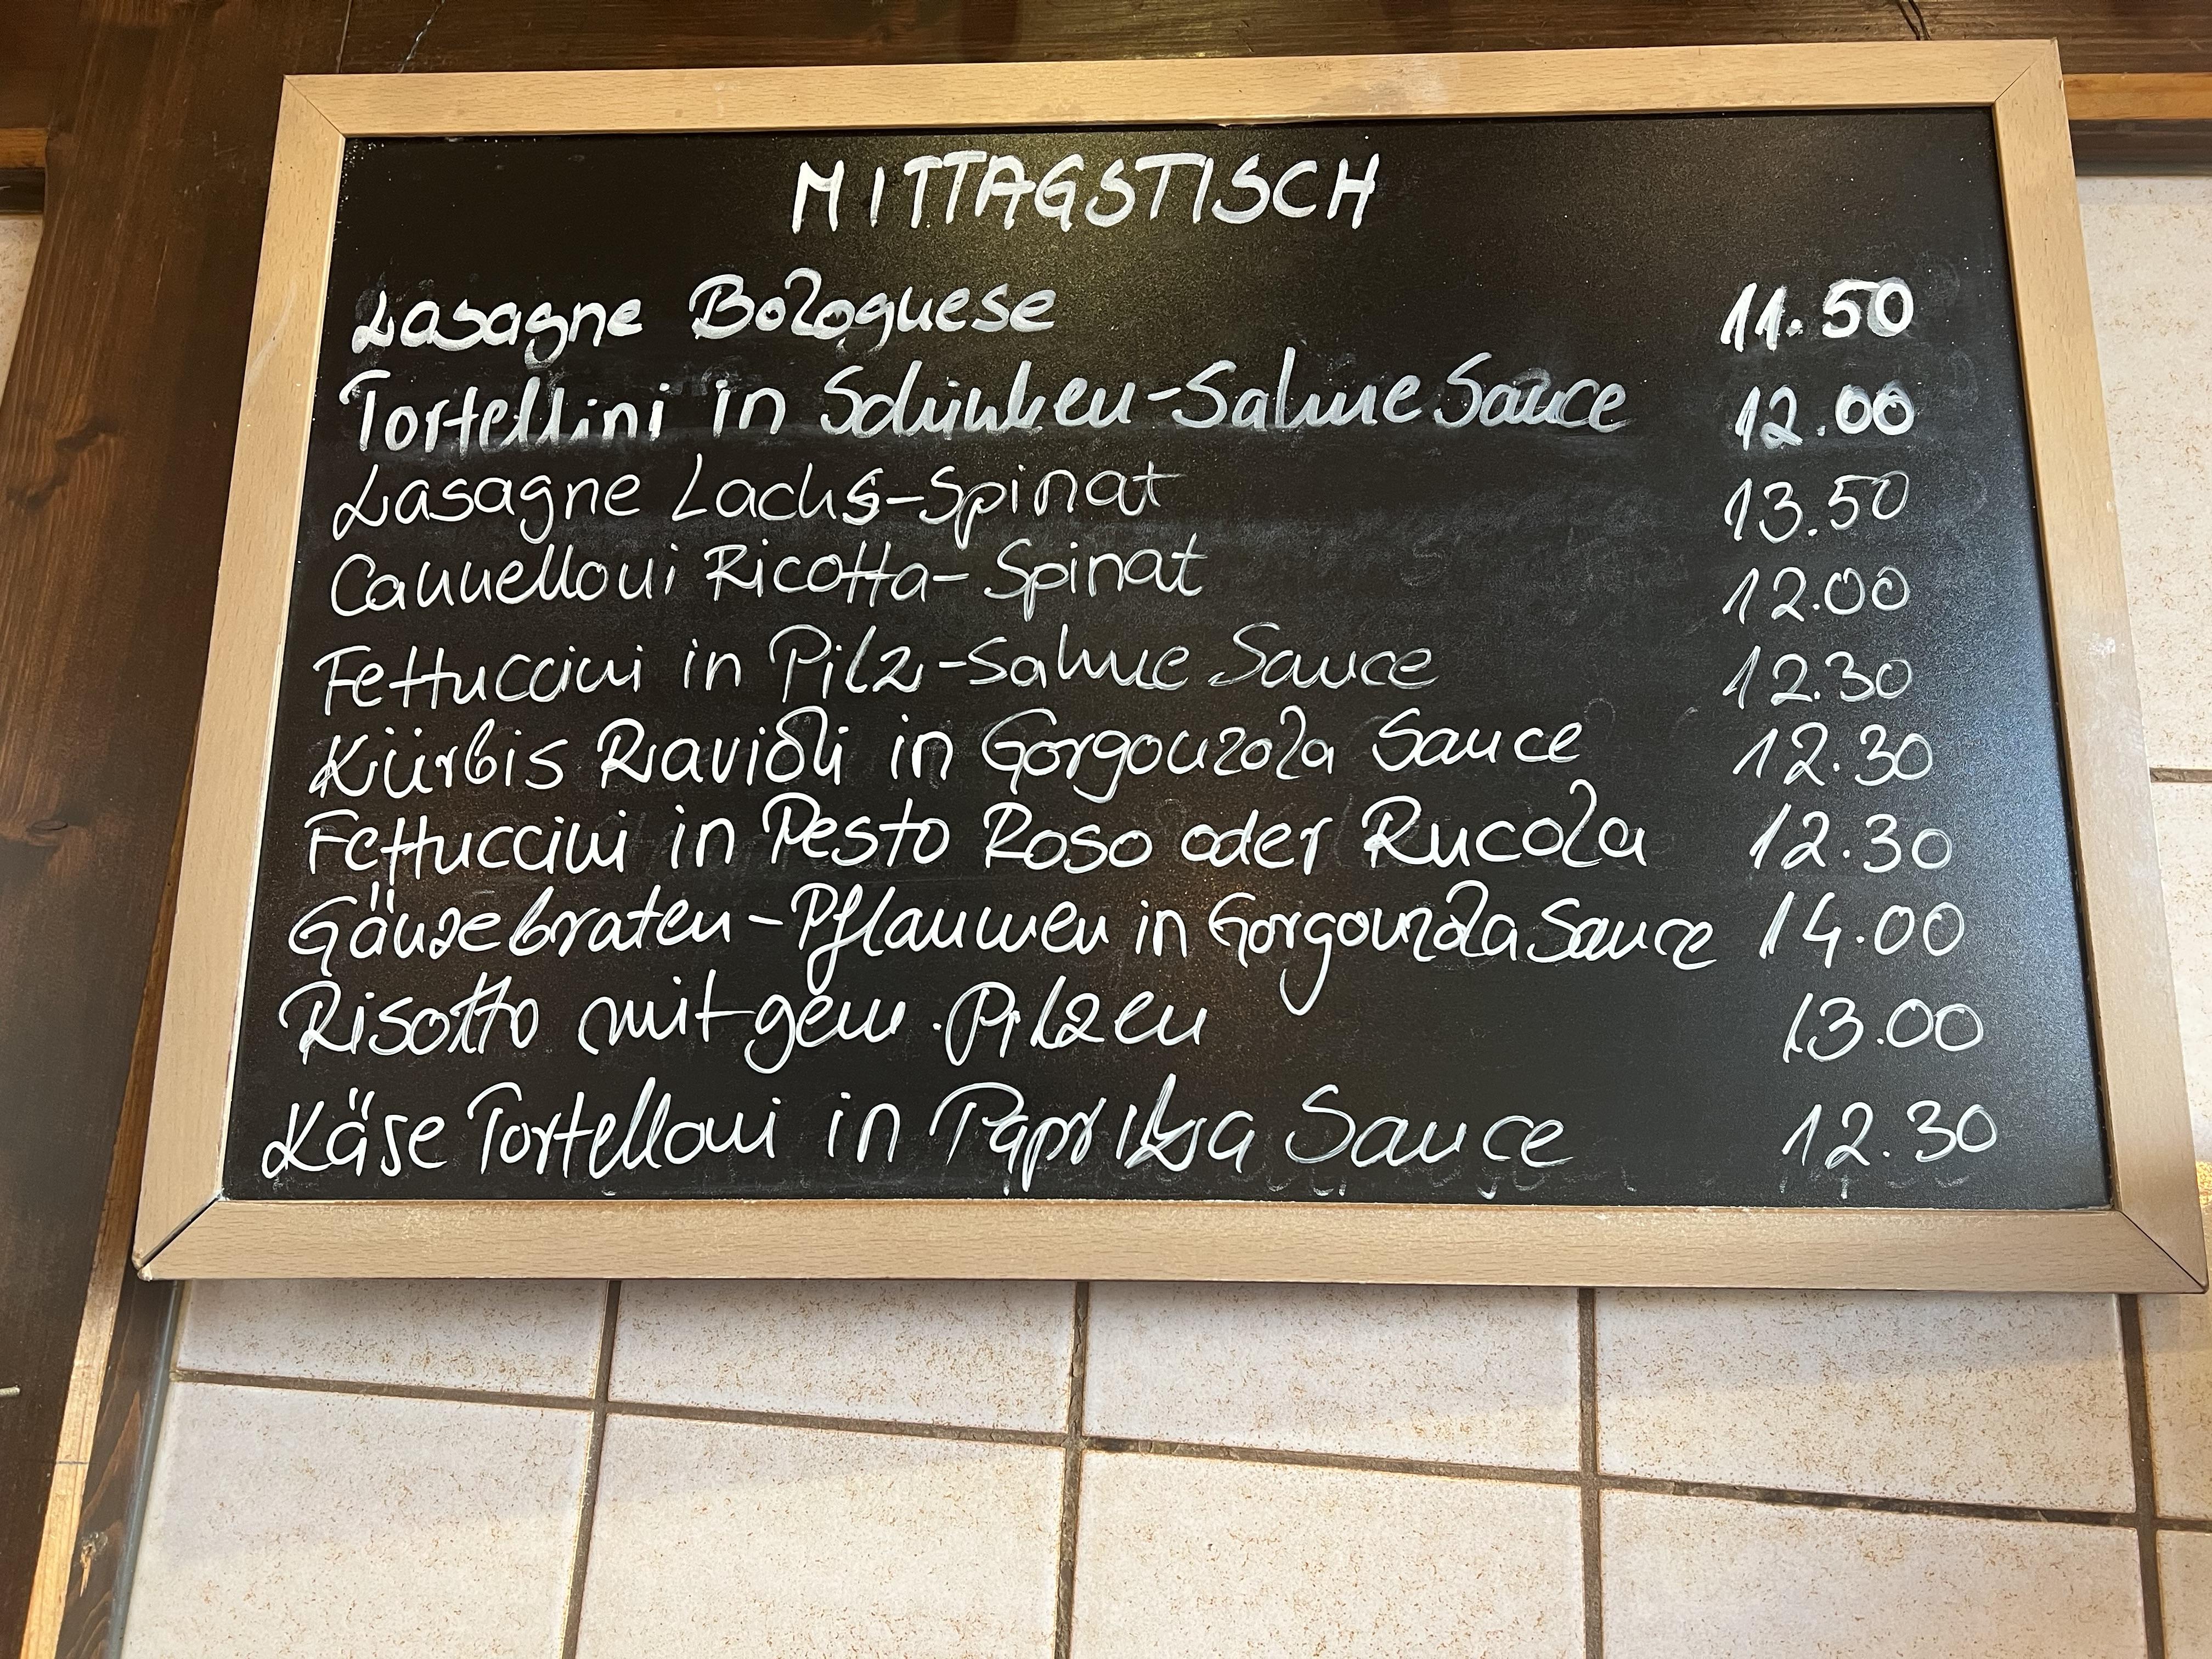 MITTAGSTISCH
Lasagne Bolognese 11.50
Tortellini in Schinken-Sahne Sauce 12.00
Lasagne Lachs-Spinat 13.50
Cannelloni Ricotta-Spinat 12.00
Fettuccini in Pilz-Sahne Sauce 12.30
Kürbis Ravioli in Gorgonzola Sauce 12.30
Fettuccini in Pesto Roso oder Rucola 12.30
Gänsebraten-Pflaumen in Gorgonzola Sauce 14.00
Risotto mit gem. Pilzen 13.00
Käse Tortelloni in Paprika Sauce 12.30